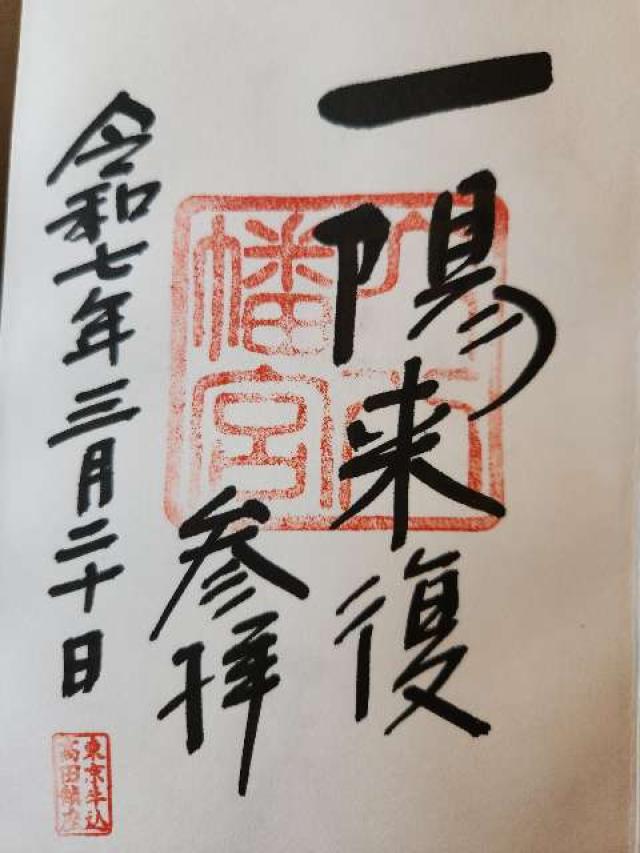 一陽来復
幡宮
参拝
令和七年三月二十日
東京牛込
高田鎮座